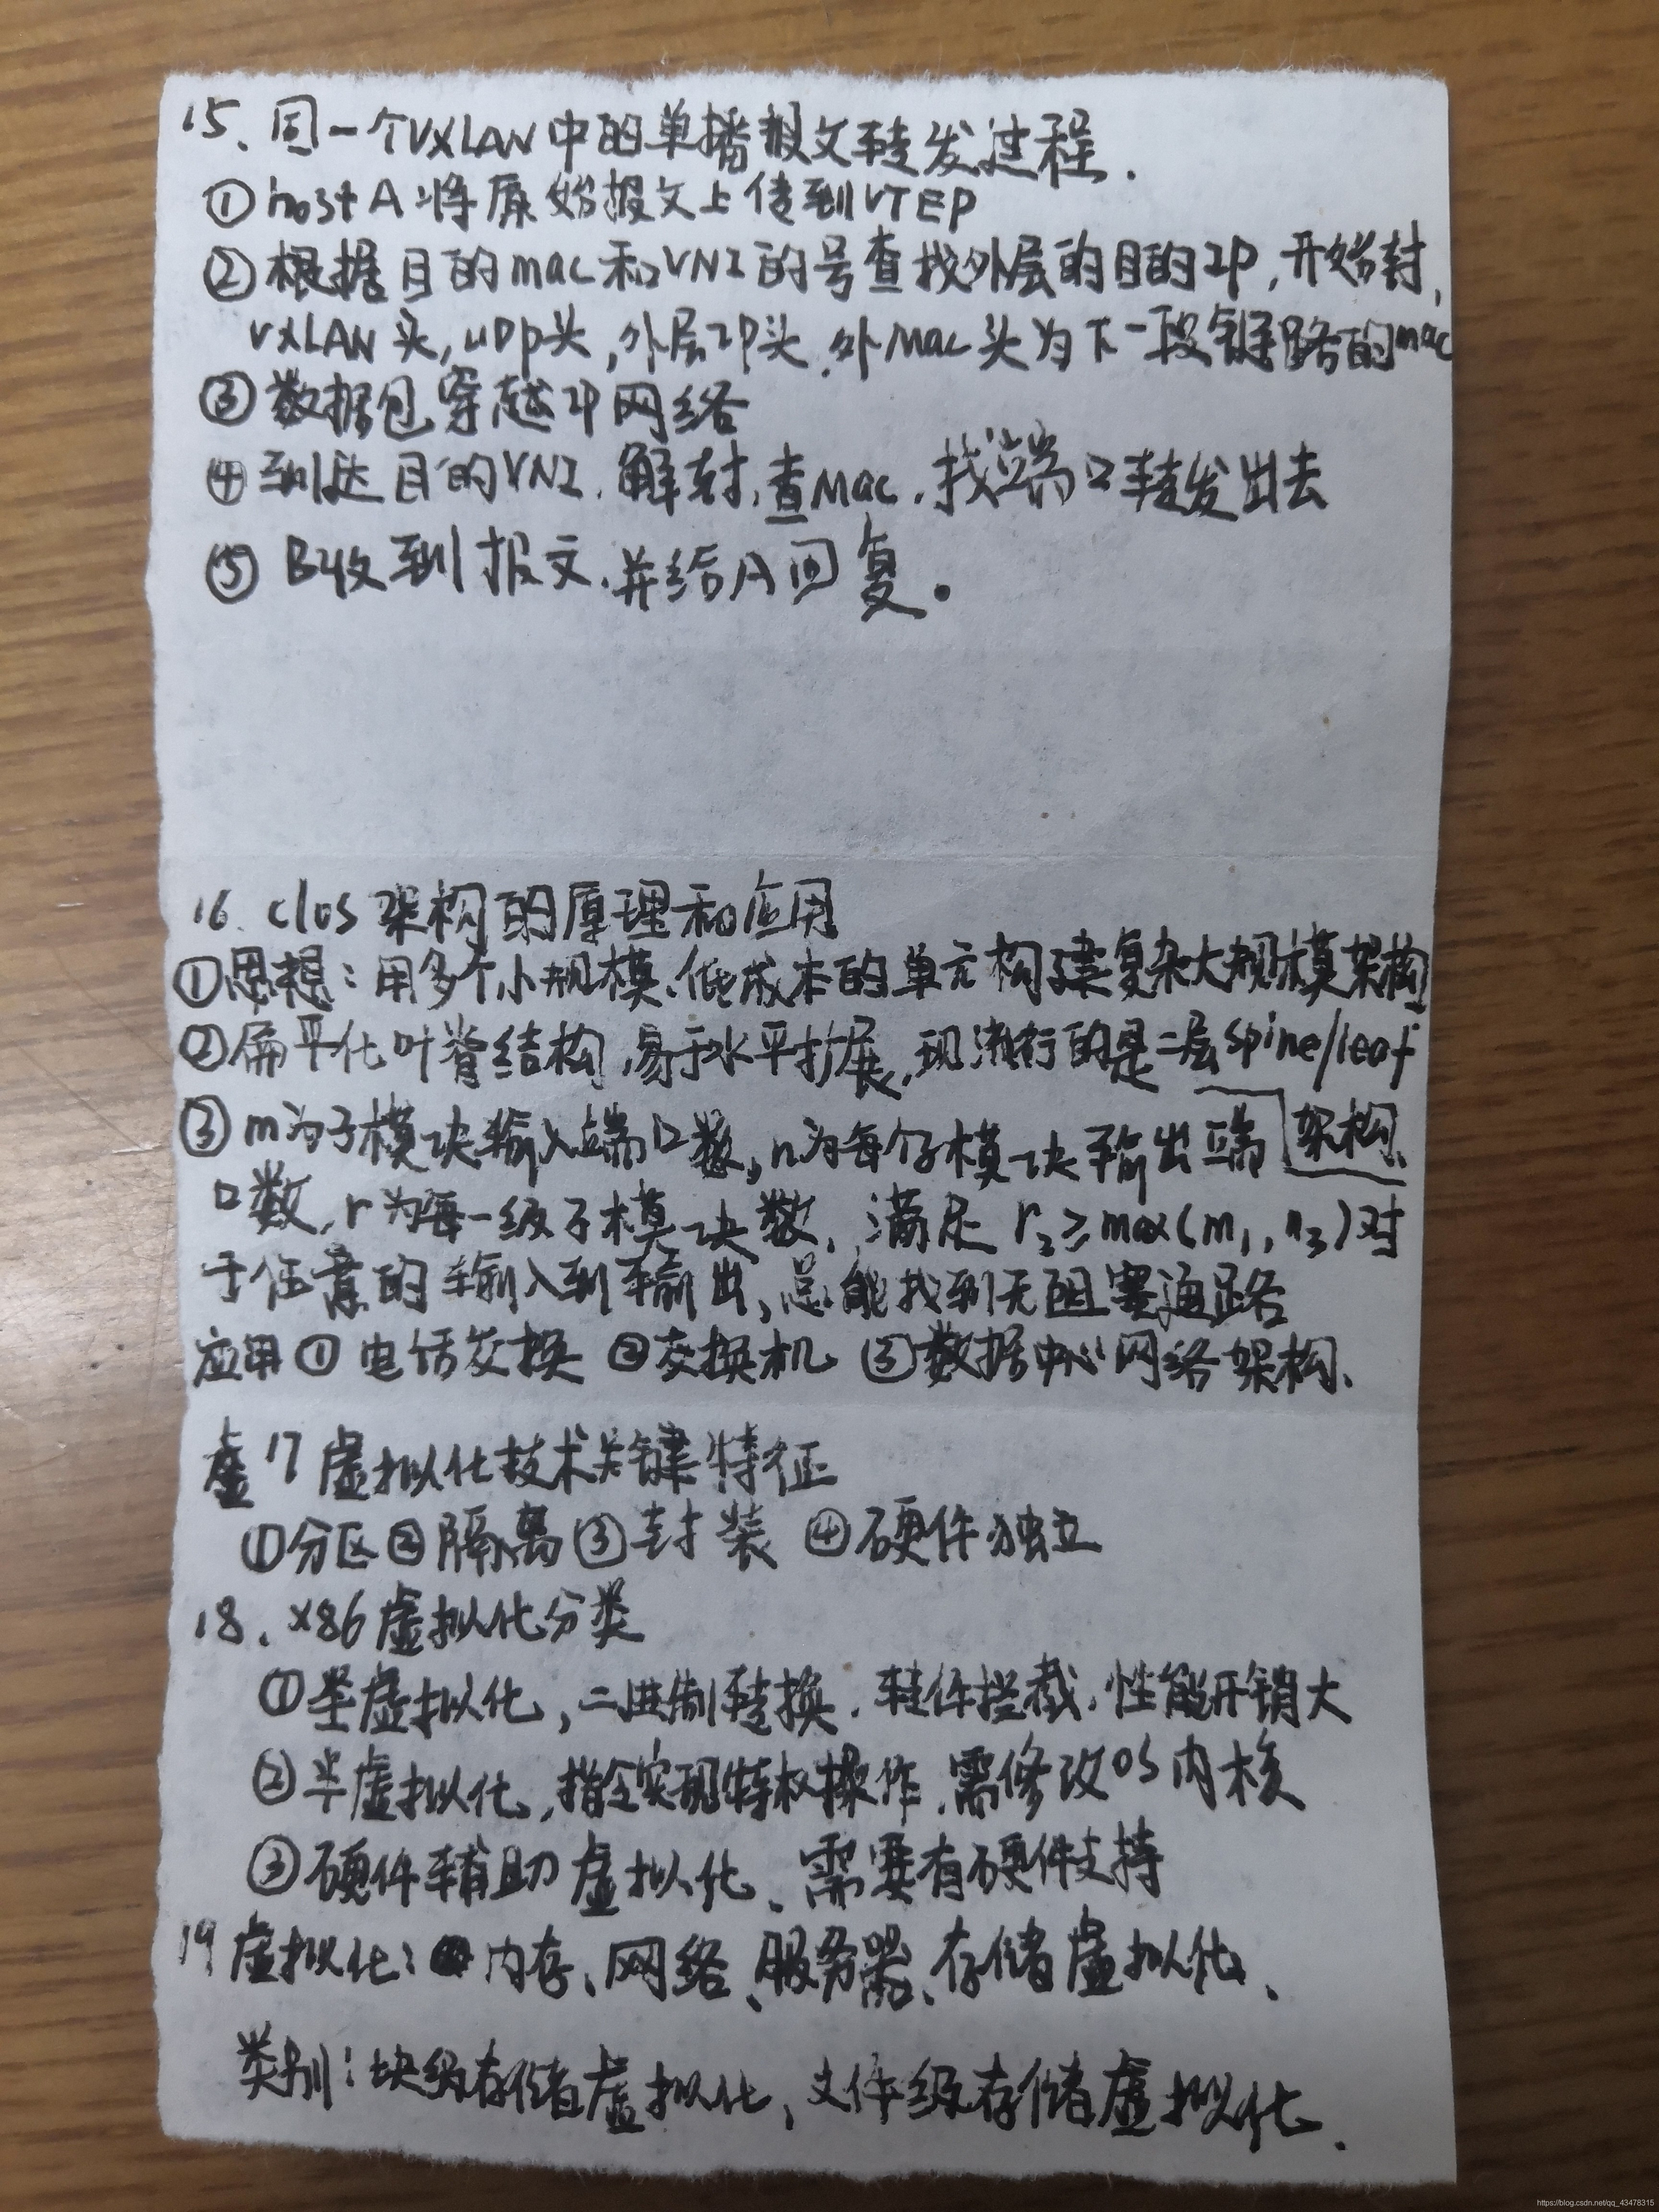 15、同一个VXLAN中的单播报文转发过程.
①hostA将原始报文上传到VTEP
②根据目的mac和VNI的号查找外层的目的IP,开始封,
VXLAN头,UDP头,外层IP头.外Mac头为下一段链路的mac
③数据包穿越IP网络
④到达目的VNI.解封.查Mac.找端口转发出去
⑤B收到报文.并给A回复。
16.clos架构的原理和应用
①思想:用多个小规模、低成本的单元构建复杂大规模架构
②扁平化叶脊结构,易于水平扩展,现流行的是二层spine/leaf
架构.
③m为子模块输入端口数,n为每个子模块输出端
口数,r为每一级子模块数,满足r₂≥max(m₁,n₃)对
于任意的输入到输出,总能找到无阻塞通路
应用①电话交换②交换机③数据中心网络架构、
17虚拟化技术关键特征
①分区②隔离③封装④硬件独立
18.x86虚拟化分类
①全虚拟化,二进制转换.软件拦截.性能开销大
②半虚拟化,指令实现特权操作.需修改OS内核
③硬件辅助虚拟化、需要有硬件支持
19虚拟化:内存、网络、服务器、存储虚拟化、
类别:块级存储虚拟化,文件级存储虚拟化.
https://blog.csdn.net/qq_43478315